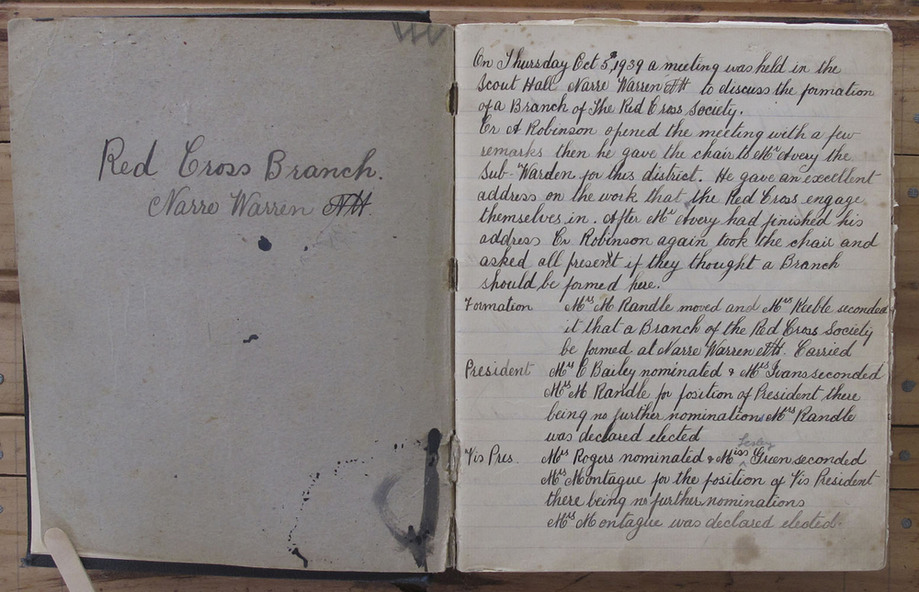 Red Cross Branch.
Narre Warren Nth.
On Thursday Oct 5th, 1939 a meeting was held in the
Scout Hall Narre Warren Nth to discuss the formation
of a Branch of The Red Cross Society.
Cr A Robinson opened the meeting with a few
remarks then he gave the chair to Mr Avery the
Sub-Warden for this district. He gave an excellent
address on the work that the Red Cross engage
themselves in. After Mr Avery had finished his
address Cr. Robinson again took the chair and
asked all present if they thought a Branch
should be formed here.
Formation Mrs M Randle moved and Mrs Keeble seconded
it that a Branch of the Red Cross Society
be formed at Narre Warren Nth. Carried
President Mrs C Bailey nominated & Mrs Ivans seconded
Mrs M Randle for position of President there
being no further nominations Mrs Randle
was declared elected
Lesley
Vis Pres. Mrs Rogers nominated & Miss Green seconded
Mrs Montague for the position of Vis President
there being no further nominations
Mrs Montague was declared elected.